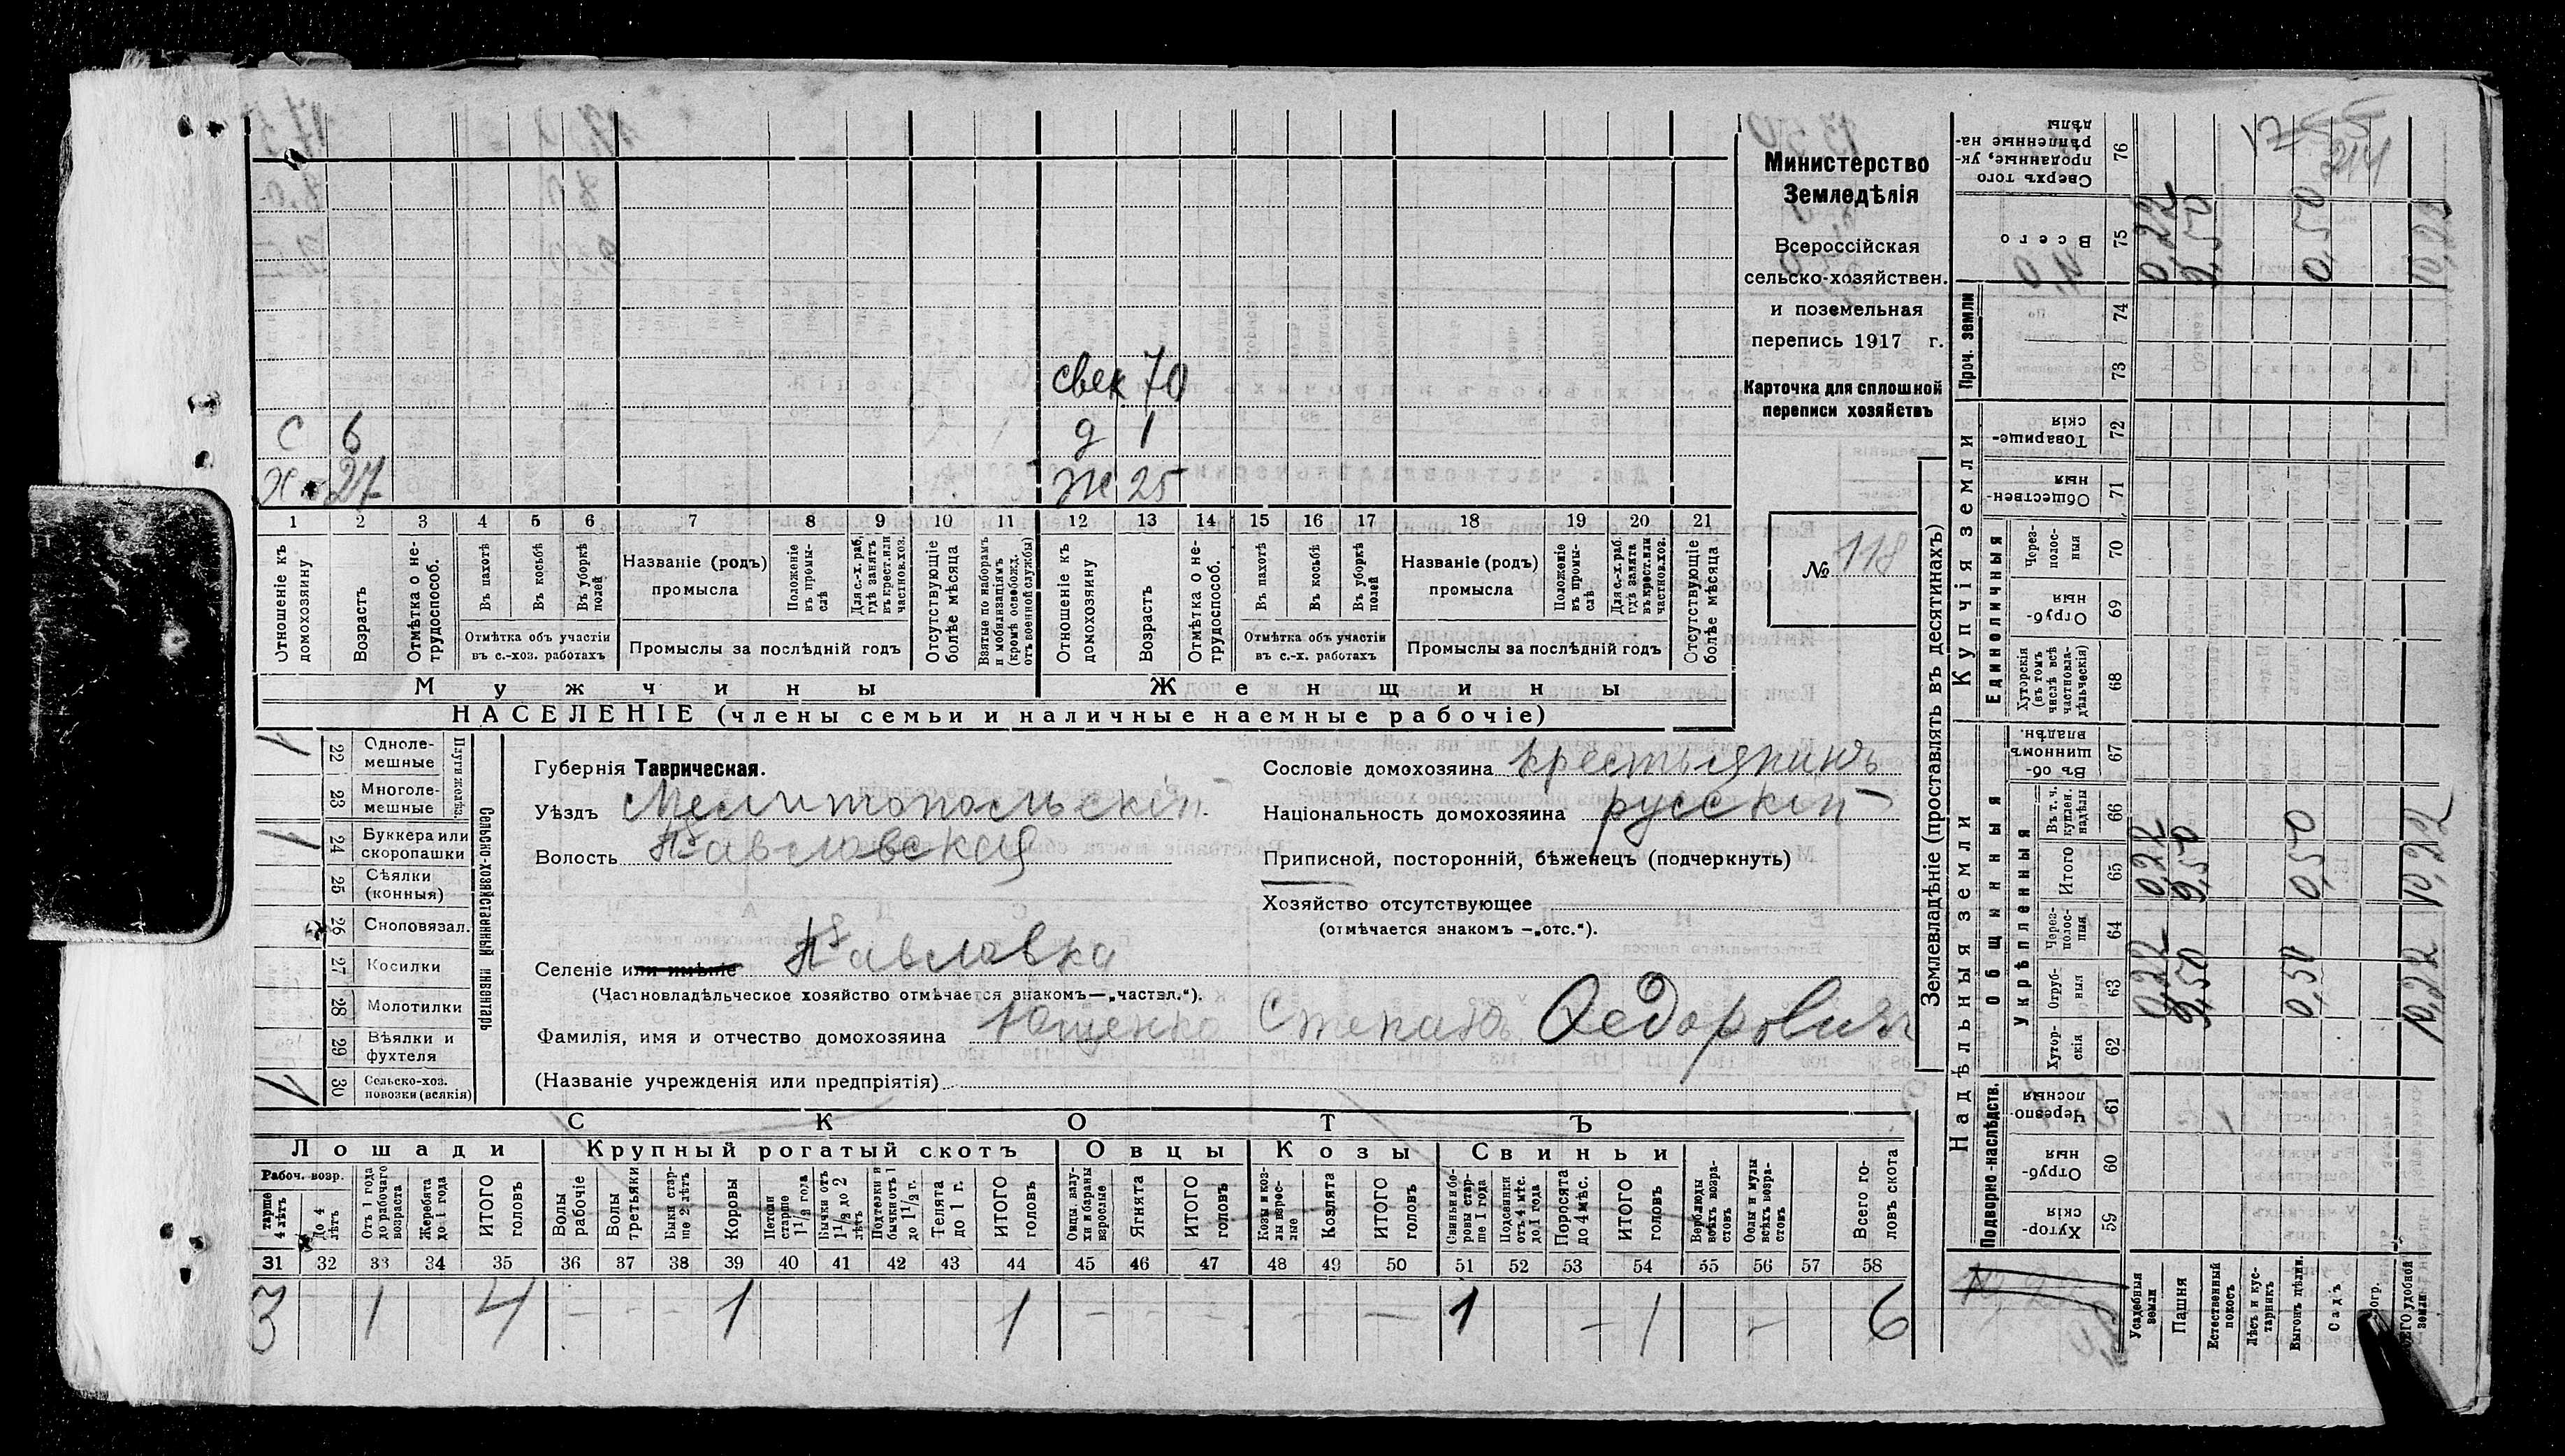 Министерство
Земледѣлія
Всероссійская
сельско-хозяйствен.
и поземельная
перепись 1917 г.
Карточка для сплошной
переписи хозяйствъ
№ 118
свек 70
С 6
д 1
Х 27
Ж 25
1 2 3 4 5 6 7 8 9 10 11 12 13 14 15 16 17 18 19 20 21
Отношеніе къ домохозяину
Возрастъ
Отмѣтка о не-трудоспособ.
Въ пахотѣ
Въ косьбѣ
Въ уборкѣ полей
Отмѣтка объ участіи
въ с.-хоз. работахъ
Названіе (родъ)
промысла
Положеніе въ промы-слѣ
Для с.-х. раб. гдѣ занятъ въ крест. или частнов. хоз.
Промыслы за послѣдній годъ
Отсутствующіе болѣе мѣсяца
Взятые по наборамъ и мобилизаціямъ (кромѣ освобожд. отъ военной службы)
Отношеніе къ домохозяину
Возрастъ
Отмѣтка о не-трудоспособ.
Въ пахотѣ
Въ косьбѣ
Въ уборкѣ полей
Отмѣтка объ участіи
въ с.-х. работахъ
Названіе (родъ)
промысла
Положеніе въ промы-слѣ
Для с.-х. раб. гдѣ занята въ крест. или частнов. хоз.
Промыслы за послѣдній годъ
Отсутствующіе болѣе мѣсяца
Мужчины
Женщины
НАСЕЛЕНІЕ (члены семьи и наличные наемные рабочіе)
Сельско-хозяйственный инвентарь
22 Одноле-мешные 1
23 Многоле-мешные
24 Буккера или скоропашки 1
25 Сѣялки (конныя)
26 Сноповязал.
27 Косилки
28 Молотилки
29 Вѣялки и фухтеля
30 Сельско-хоз. повозки (всякія) 1
Губернія Таврическая.
Уѣздъ Мелитопольскій
Волость Павловская
Селеніе или имѣніе Павловка
(Частновладѣльческое хозяйство отмѣчается знакомъ—„частвл.").
Фамилія, имя и отчество домохозяина Ющенко Степанъ Ѳедоровичъ
(Названіе учрежденія или предпріятія)
Сословіе домохозяина крестьянинъ
Національность домохозяина русскій
Приписной, посторонній, бѣженецъ (подчеркнуть)
Хозяйство отсутствующее
(отмѣчается знакомъ —„отс.").
СКОТЪ
Лошади
Крупный рогатый скотъ
Овцы
Козы
Свиньи
Рабоч. возр.
тарше 4 лѣтъ
До 4 лѣтъ
Отъ 1 года до рабочаго возраста
Жеребята до 1 года
ИТОГО головъ
Волы рабочіе
Волы третьяки
Быки стар-ше 2 лѣтъ
Коровы
Нетели старше 1½ года
Бычки отъ 1½ до 2 лѣтъ
Подтелки и бычки отъ 1 до 1½ г.
Телята до 1 г.
ИТОГО головъ
Овцы, валу-хи и бараны взрослые
Ягнята
ИТОГО головъ
Козы и коз-лы взрос-лые
Козлята
ИТОГО головъ
Свиньи и бо-ровы стар-ше 1 года
Подсвинки отъ 4 мѣс. до 1 года
Поросята до 4 мѣс.
ИТОГО головъ
Верблюды всѣхъ возра-стовъ
Ослы и мулы всѣхъ возра-стовъ
Всего го-ловъ скота
31 32 33 34 35 36 37 38 39 40 41 42 43 44 45 46 47 48 49 50 51 52 53 54 55 56 57 58
3 1 4 - - - 1 - - - - 1 - - - - - - 1 - 1 - 6
Землевладѣніе (проставлять въ десятинахъ)
Надѣльныя земли
Купчія земли
Проч. земли
Подворно-наслѣдств.
Общинныя
Укрѣпленныя
Единоличныя
76 Сверхъ того проданные, ук-рѣпленные на-дѣлы
75 Всего
74
73
72 Товарище-скія
71 Обществен-ныя
70 Через-полос-ныя
69 Отруб-ныя
68 Хуторскія (въ томъ числѣ всѣ частновла-дѣльческія)
67 Въ об-щинномъ владѣн.
66 Въ т. ч. куплен. надѣлы
65 Итого
64 Через-полос-ныя
63 Отруб-ныя
62 Хутор-скія
61 Черезпо-лосныя
60 Отруб-ныя
59 Хутор-скія
Усадебныя земли 0,22 0,22 0,22
Пашня 9,50 9,50 9,50
Естественный покосъ
Лѣсъ и кус-тарникъ
Выгонъ дѣлин. 0,50 0,50 0,50
Садъ
огр.
его удобной земли 10,22 10,22 10,22
214